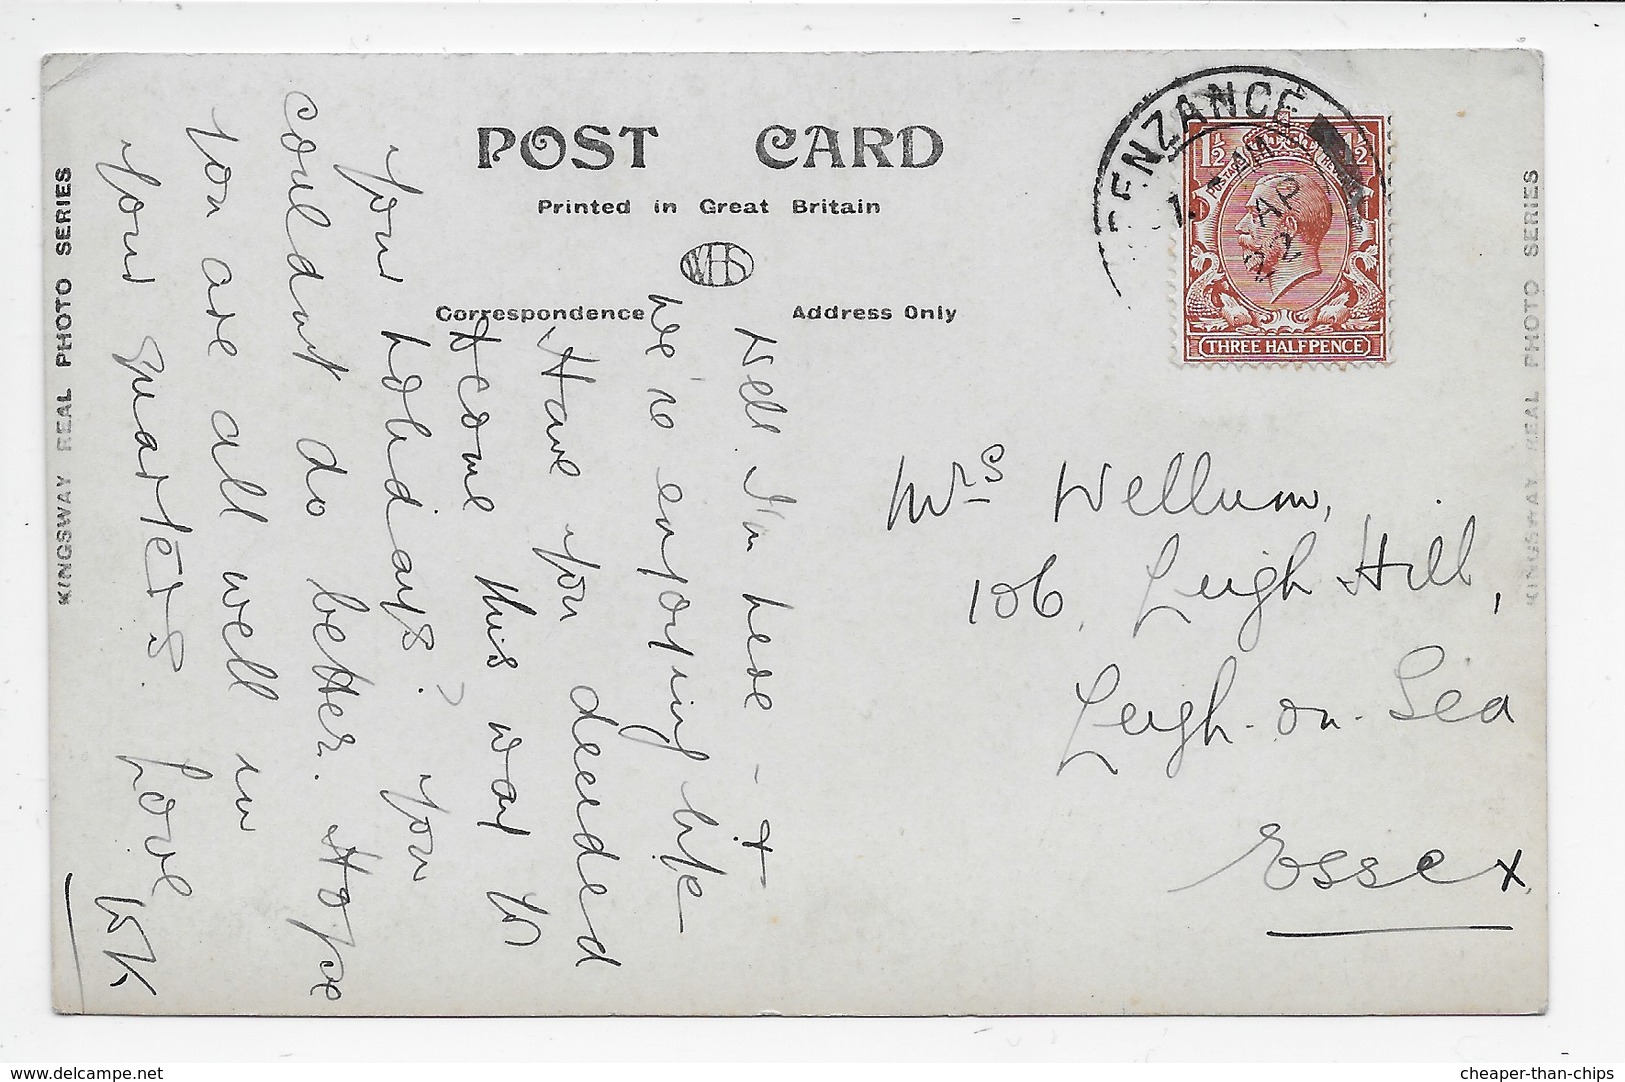 POST CARD
Printed in Great Britain
WHS
Correspondence
Address Only
KINGSWAY REAL PHOTO SERIES
KINGSWAY REAL PHOTO SERIES
PENZANCE
AP
22
1½ 1½
POSTAGE REVENUE
THREE HALFPENCE
Well I'm here - &
we're enjoying life
Have you decided
to come this way for
your holidays? You
couldn't do better. Hope
you are all well in
your quarters. Love
WK
Mrs Wellum,
106, Leigh Hill,
Leigh-on-Sea
Essex
www.delcampe.net
cheaper-than-chips